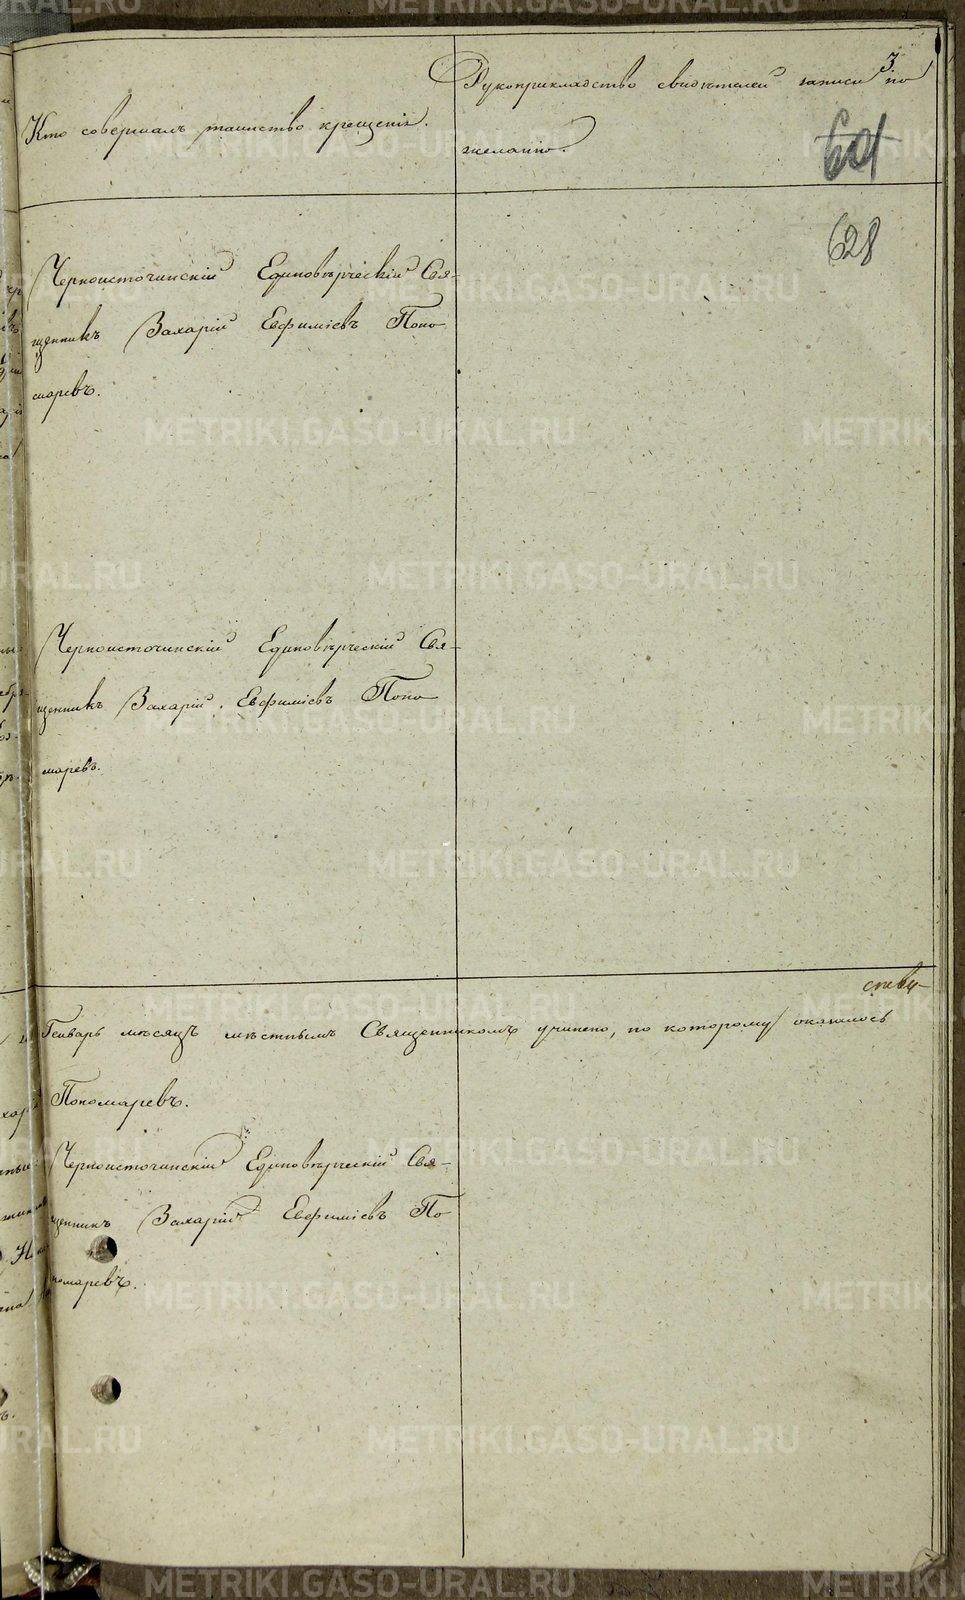 3
Рукоприкладство свидѣтелей записи по
Кто совершалъ таинство крещенія.
желанію.
601
628
Черноисточинскій Единовѣрческій Свя-
щенникъ Захарій Евфиміевъ Поно
маревъ.
Черноисточинскій Единовѣрческій Свя-
щенникъ Захарій Евфиміевъ Поно
маревъ.
Генварь мѣсяцъ мѣстнымъ Священникомъ учинено, по которому оказалось
Пономаревъ.
Черноисточинскій Единовѣрческій Свя-
щенникъ Захарій Евфиміевъ По
номаревъ.
METRIKI.GASO-URAL.RU